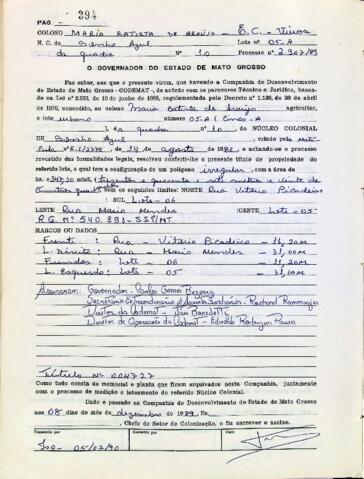 PAG. - 394
COLONO MARIA BATISTA DE ARAÚJO - E.C. - Viúva
N. C. de Serenho Azul Lote nº 05-A
da quadra Nº 10 Processo nº 2.907/89
O GOVERNADOR DO ESTADO DE MATO GROSSO
Faz saber, aos que o presente virem, que havendo a Companhia de Desenvolvimento
do Estado de Mato Grosso - CODEMAT -, de acordo com os pareceres Técnico e Jurídico, basea-
da na Lei nº 2.133, de 10 de junho de 1989, regulamentada pelo Decreto nº 1.138, de 30 de abril
de 1970, concedido, ao colono Maria Batista de Araújo, agricultor,
o lote urbano número 05-A (Cinco-A
), da quadra nº 10, DO NÚCLEO COLONIAL
DE Azul, criado pela
de 14 de agosto de 19 , e achando-se o processo
revestido das formalidades legais, resolveu conferir-lhe o presente título de propriedade do
referido lote, o qual tem a configuração de um polígono irregular, com a área de
ha 347,20 m² (trezentos e quarenta e sete metros e vinte
) Sem os seguintes limites: NORTE Rua Vitório Picadeiro
: SUL Lote - 06
LESTE Rua Mario Mendes :OESTE Lote - 05
R.G. Nº 540.891-SSP/MT.
MARCOS OU DADOS
Frente : Rua - Vitório Picadeiro - 11,20M
L. Direito : Rua - Mario Mendes - 31,00M
Fundos : Lote - 06 - 11,20M
L. Esquerdo : Lote - 05 - 31,00M
Assinaram: Governador - Carlos Gomes Bezerra
Secretário Extraordinário
Diretor da Codemat -
Diretor de Operações da Codemat -
Título Nº 004727
Como tudo consta do memorial e planta que ficam arquivados nesta Companhia, juntamente
com o processo de medição e loteamento do referido Núcleo Colonial.
Dado e passado na Companhia de Desenvolvimento do Estado de Mato Grosso
aos 08 dias do mês de dezembro de 1989. Eu,
, Chefe do Setor de Colonização, o fiz escrever e assino.
Escriturado por Conferido por Visto
05/02/90